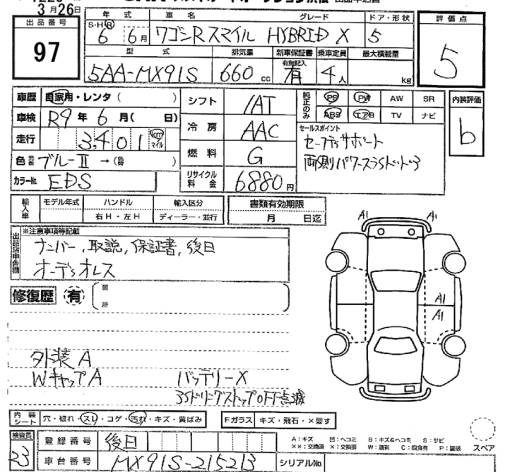 3月26日
出品番号 97
年式 車名 グレード ドア・形状 評価点
S・H・R 6 6月 ワゴンRスマイル HYBRID X 5
5
型式 排気量 新車保証書 有無記入 乗車定員 最大積載量
5AA-MX91S 660cc 有 4人 kg
車歴 自家用・レンタ( )
車検 R9年6月( 日)
走行 3,401 km マイル
色 ブルーⅡ→( )
カラーNo. EDS
シフト IAT
冷房 AAC
燃料 G
リサイクル料金 6880円
純正のみ PS PW AW SR
ABS エアB TV ナビ
内装評価 b
セールスポイント
セーフティサポート
両側パワースライドドア
輸入車 モデル年式 ハンドル 右H・左H 輸入区分 ディーラー・並行
書類有効期限 月 日迄
出品店申告欄 ※注意事項等記載
ナンバー,取説,保証書,後日
オーディオレス
修復歴 有 箇所
A1 A1
A1
A1
外装A
WキャップA バッテリーX
アイドリングストップOFF点滅
内装シート 穴・破れ・スレ・コゲ・汚れ・キズ・黄ばみ Fガラス キズ・飛石・×要す
検査員 23
登録番号 後日
車台番号 MX91S-215213 シリアルNo.
A:キズ U:ヘコミ B:キズ&ヘコミ S:サビ
スペア